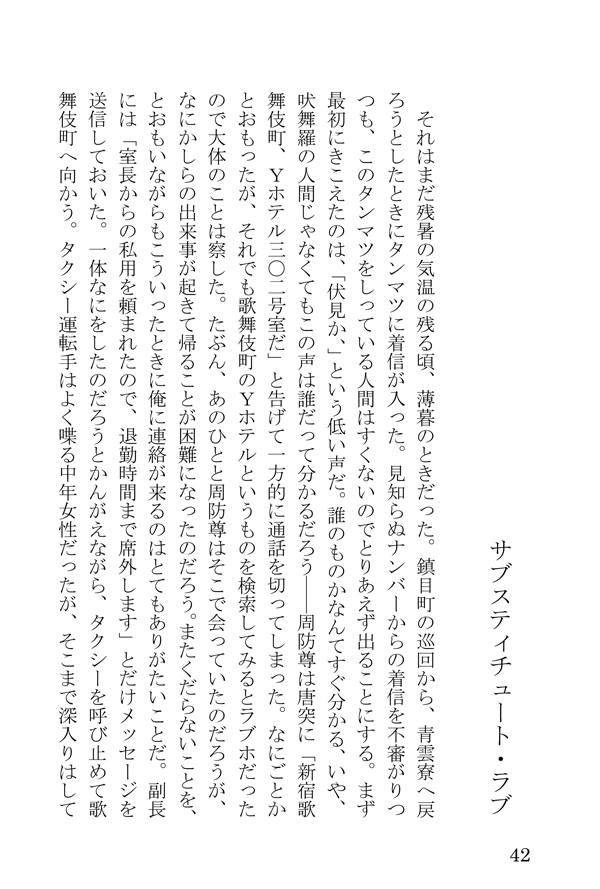 サブスティチュート・ラブ
　それはまだ残暑の気温の残る頃、薄暮のときだった。鎮目町の巡回から、青雲寮へ戻
ろうとしたときにタンマツに着信が入った。見知らぬナンバーからの着信を不審がりつ
つも、このタンマツをしっている人間はすくないのでとりあえず出ることにする。まず
最初にきこえたのは、「伏見か、」という低い声だ。誰のものかなんてすぐ分かる、いや、
吠舞羅の人間じゃなくてもこの声は誰だって分かるだろう――周防尊は唐突に「新宿歌
舞伎町、Ｙホテル三〇二号室だ」と告げて一方的に通話を切ってしまった。なにごとか
とおもったが、それでも歌舞伎町のＹホテルというものを検索してみるとラブホだった
ので大体のことは察した。たぶん、あのひとと周防尊はそこで会っていたのだろうが、
なにかしらの出来事が起きて帰ることが困難になったのだろう。またくだらないことを、
とおもいながらもこういったときに俺に連絡が来るのはとてもありがたいことだ。副長
には「室長からの私用を頼まれたので、退勤時間まで席外します」とだけメッセージを
送信しておいた。一体なにをしたのだろうとかんがえながら、タクシーを呼び止めて歌
舞伎町へ向かう。タクシー運転手はよく喋る中年女性だったが、そこまで深入りはして
42